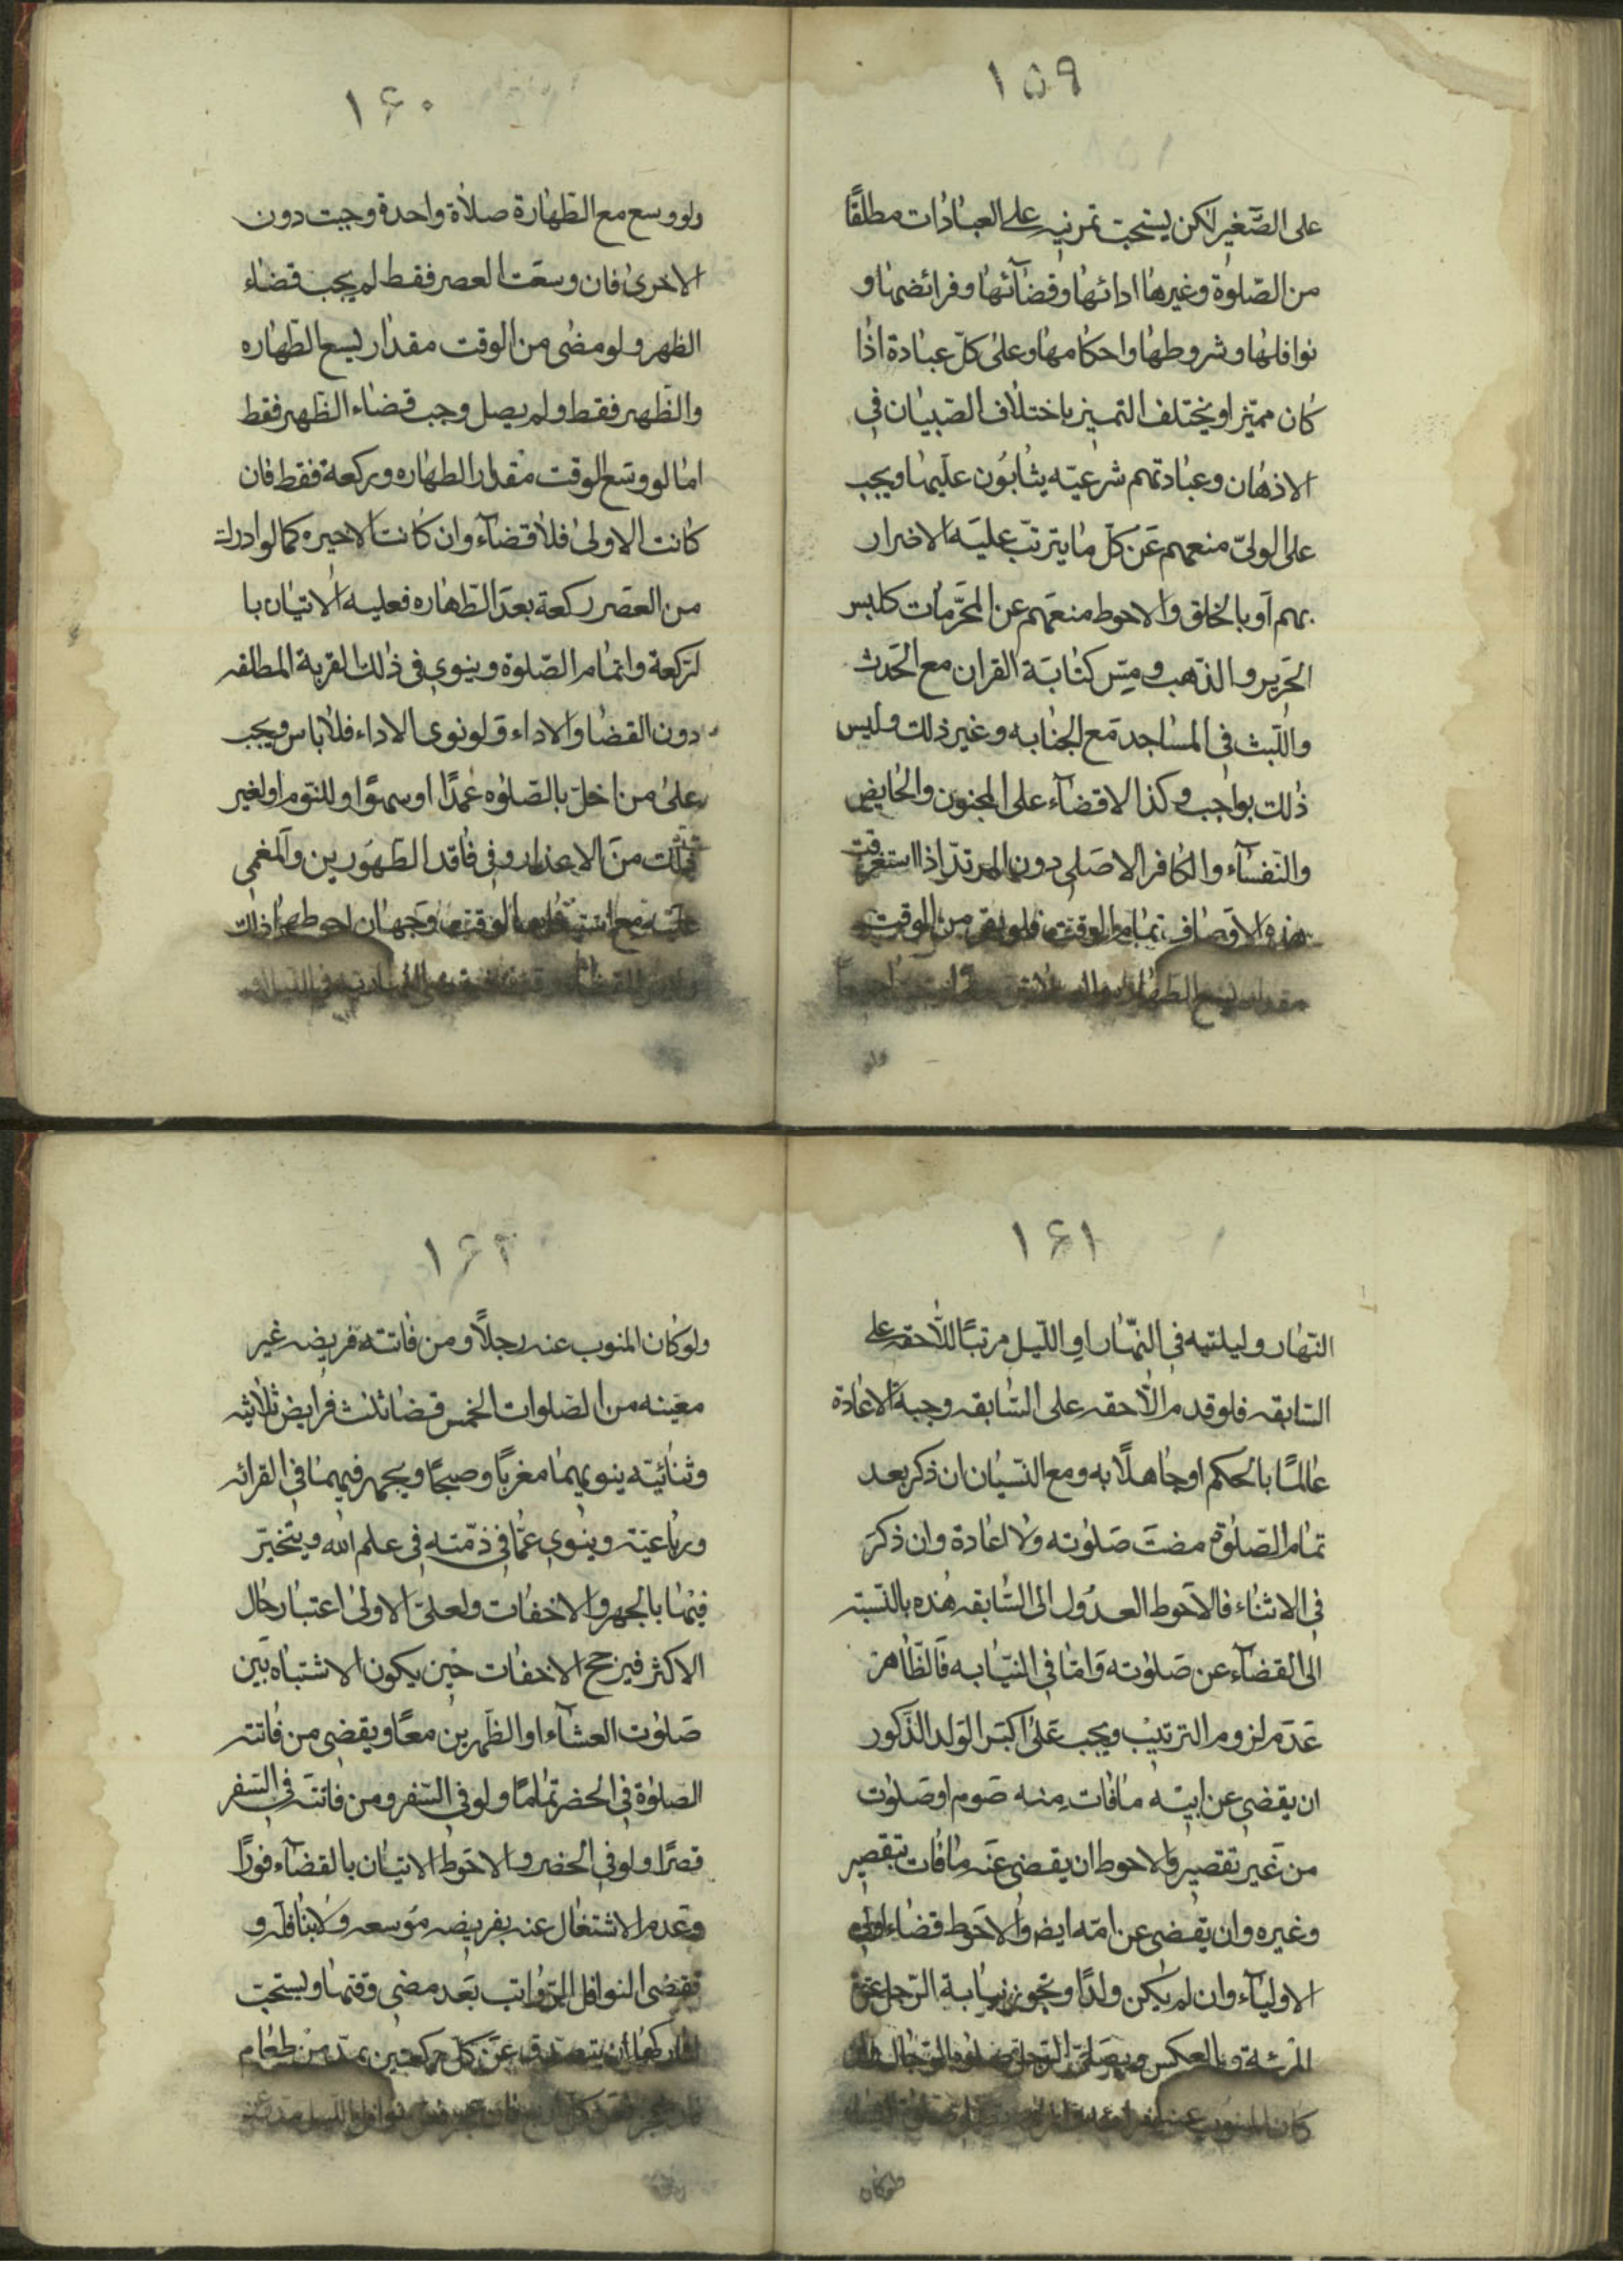 ١٥٩
على الصَّغير لكن يستحب تمرنيه على العبادات مطلقًا
من الصّلوة وغيرها ادائها وقضآئها وفرائضها و
نوافلها وشروطها واحكامها وعلى كلّ عبادة اذا
كان مميّز او يختلف التميز باختلاف الصّبيان في
الاذهان وعبادتهم شرعيّه يثابُون عليها ويجب
على الولىّ منعهم عَن كلّ ما يترتّب عليه الاضرار
بهم اَو بالخلق والاحوط منعَهم عن المحرّمات كلبس
الحَرير والذّهب ومسّ كتابَة القران مع الحَدث
واللّبث في المسَاجد مَع الجنابه وغير ذلك وليس
ذٰلك بواجب وكذا لا قضآء على المجنون والحايض
والنّفسآء والكافر الاصَلي دون المرتدّ اذا استغرقت
هذه الاَوصاف تمام الوقت فلو بقى من الوقت
مقدار يسع الطّهارة
ولو
١۶٠
ولو وسع مع الطّهارة صلاة واحدة وجبت دون
الاخرىٰ فان وسعَت العصر فقط لم يجب قضاء
الظهر ولو مضٰى من الوقت مقدار يسع الطّهاره
والظّهر فقط ولم يصل وجب قضاء الظّهر فقط
امّا لو وسَع الوقت مقدار الطهاره وركعة فقط فان
كانت الاولىٰ فلا قضآء وان كانت الاخيره كما لو ادرك
من العصَر ركعة بعدَ الطّهاره فعليه الاتيان با
لرّكعة واتمام الصّلوة وينوي في ذٰلك القربة المطلقه
دون القضا والاداء وَلو نوى الاداء فلا باس ويجب
على من اخلّ بالصّلوه عَمدًا او سهوًا او للنّوم او لغير
ذلك منَ الاعذار وفي فاقد الطّهَورين والمغمي
عليه مع الوقت وَجهان احوطهما ذلك
١۶١
النّهار وليلتيه في النّهار او اللّيل مرتبًا للّاحقه على
السّابقه فلو قدم الّاحقه على السّابقه وجبة الاعادة
عالمًا بالحكم او جاهلًا به ومع النّسيان ان ذكر بعد
تمام الصّلوة مضت صَلوته ولا اعادة وان ذكرَ
في الاثناء فالاحَوط العدُول الى السّابقه هٰذه بالنّسبته
الى القضآء عن صَلوته وَامّا في النيّابه فَالظّاهر
عَدَم لزوم الترتيب ويجب عَلى اكبَر الوَلد الذّكور
ان يقضي عن ابيّه ما فات مِنه صَوم او صَلوت
من غَير تقصير والاحوط ان يقضى عَنه ما فات بتقصير
وغيره وان يقضى عن امّه ايضا والاحَوط قضاء اولى
الاوليآء وان لم يكن ولدًا وتجوز نيابة الرّجل عن
المرئة وبالعكس ويصَلى الرّجل صَلوة الرّجال
كان المنوب عنه
ولو كان
١۶٢
ولو كان المنوب عنه رجلاً ومن فاتته فريضه غير
معيّنه من الصّلوات الخمس قضا ثلث فرايض ثلاثيّه
وثنائيّه ينويهما مغربًا وصبحًا ويجهر فيهما في القرائه
ورباعيّته وينوي عمّا في ذمّته في علم الله ويتّخيّر
فيها بالجهر والاخفات ولعلىّ الاولىٰ اعتبار حال
الاكثر فيرجح الاخفات حَين يكون الاشتباه بَين
صَلوت العشآء او الظّهرين معًا ويقضي من فاتته
الصّلوة في الحَضر تمامًا ولو في السّفر ومن فاتته في السّفر
قصرًا ولو في الحضر والاحَوط الاتيان بالقضآء فورًا
وعَدم الاشتغال عنه بفريضه مَوسعه ولا بنافله و
تقضى النوافل الرّواتب بعَد مضي وقتها ويستحبّ
لتاركها أن يتصدق عَن كلّ ركعتين بمدّ من طعام